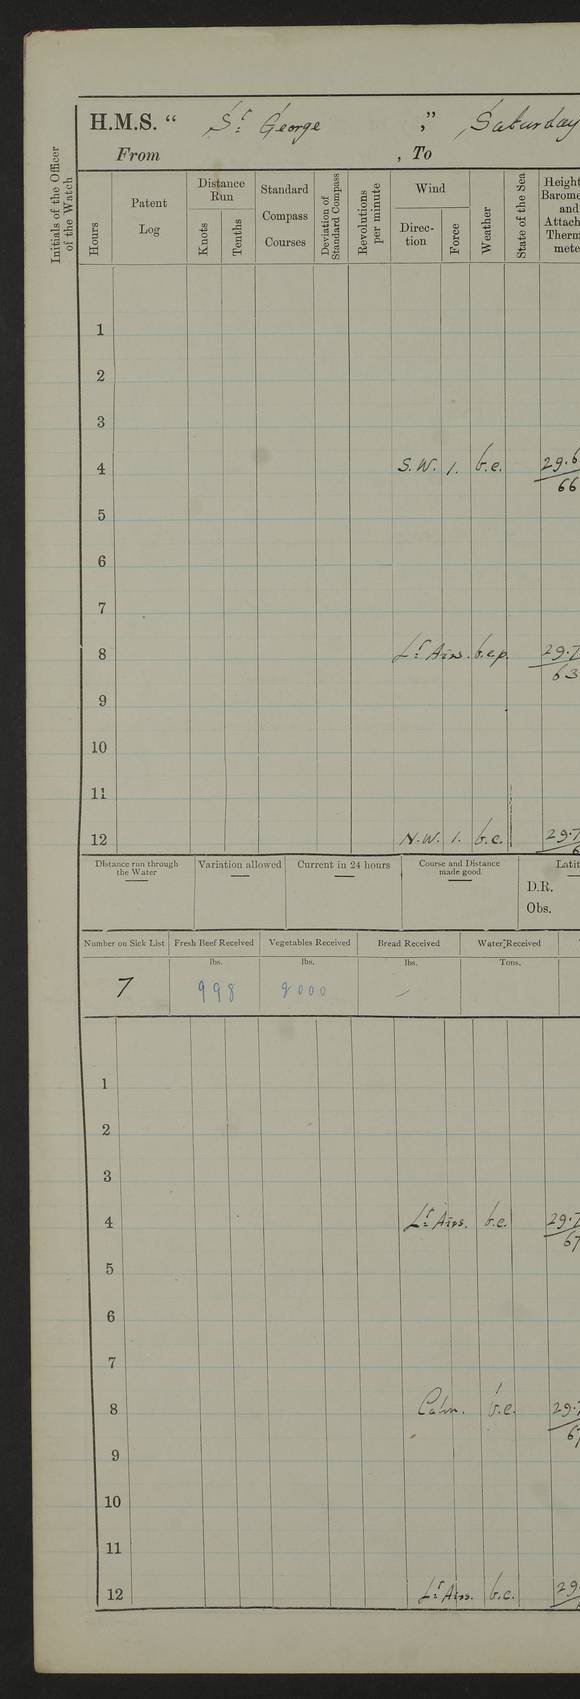 H.M.S. “ St. George ,” Saturday
From , To
Initials of the Officer of the Watch
Hours
Patent Log
Distance Run
Knots
Tenths
Standard Compass Courses
Deviation of Standard Compass
Revolutions per minute
Wind
Direc-tion
Force
Weather
State of the Sea
Height
Barome
and
Attach
Therm
mete
1
2
3
4 S.W. 1. b.c. 29.6
66
5
6
7
8 Lt. Airs. b.c.p. 29.7
63
9
10
11
12 N.W. 1. b.c. 29.7
6
Distance run through the Water
Variation allowed
Current in 24 hours
Course and Distance made good
Latit
D.R.
Obs.
Number on Sick List Fresh Beef Received Vegetables Received Bread Received Water Received
lbs. lbs. lbs. Tons.
7 998 2000 –
1
2
3
4 Lt. Airs. b.c. 29.7
67
5
6
7
8 Calm. b.c. 29.7
67
9
10
11
12 Lt. Airs. b.c. 29.